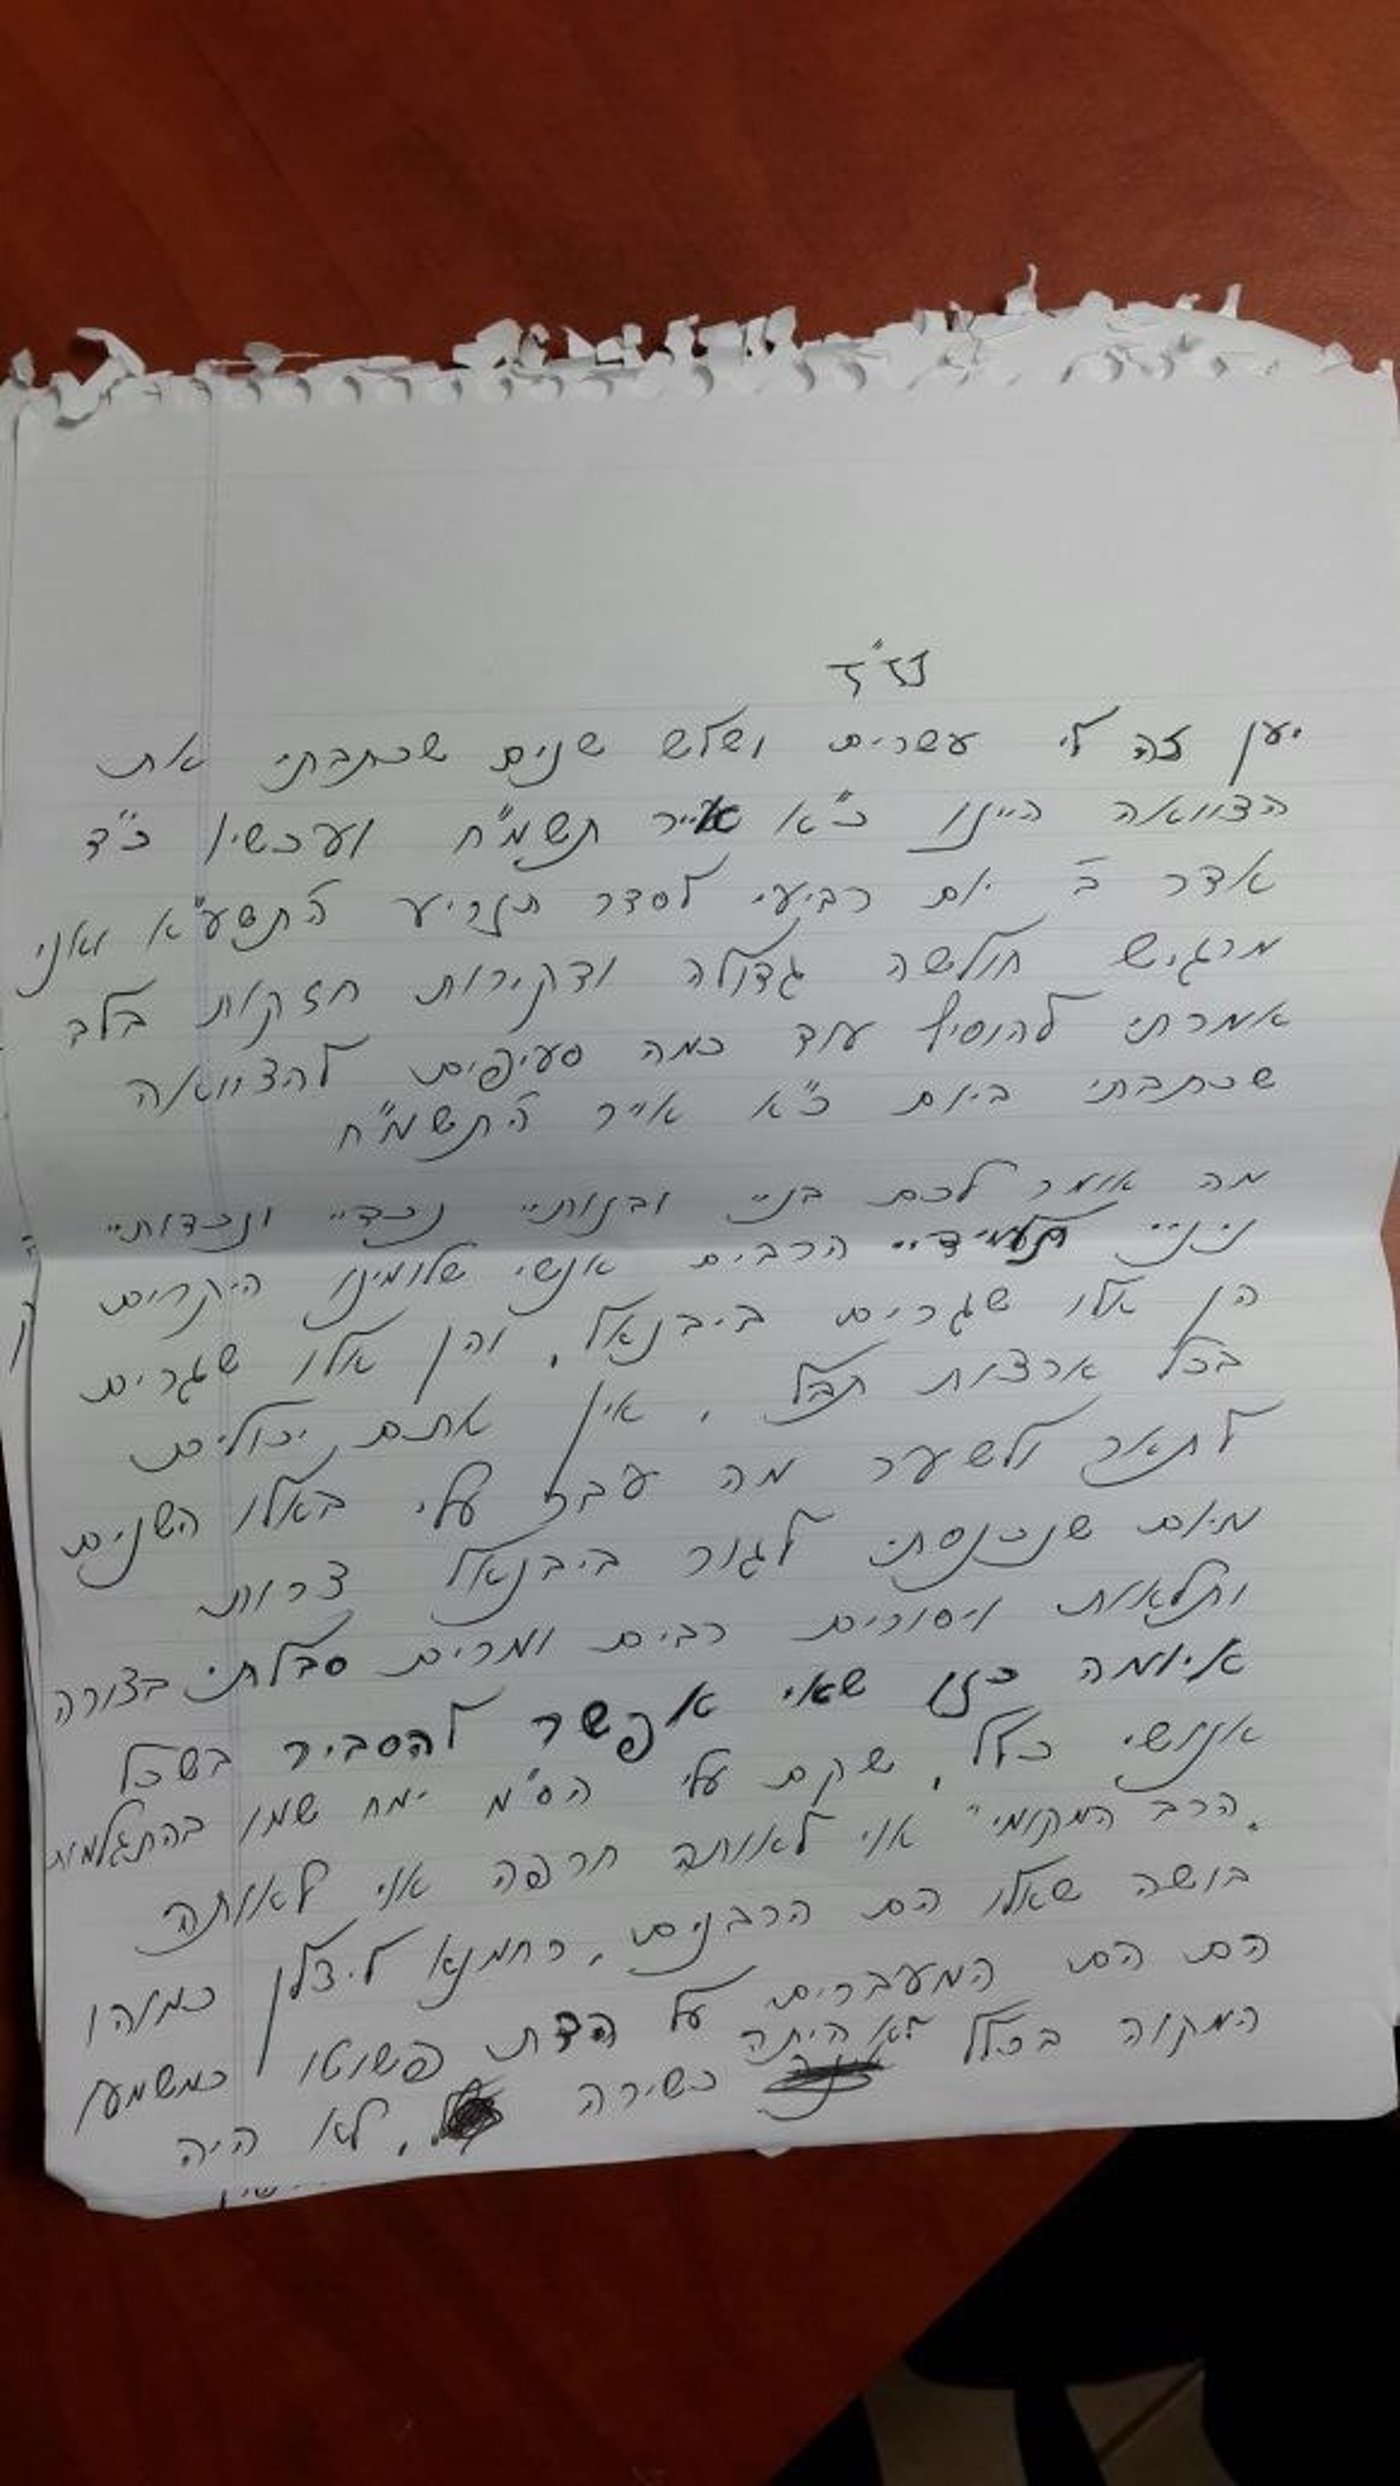 בזז"ד
יען זה לי עשרים ושלש שנים שכתבתי את
הצוואה היינו כ"א אייר תשמ"ח ועכשיו כ"ד
אדר ב' יום רביעי לסדר תזריע ה'תשע"א ואני
מרגיש חולשה גדולה ודקירות חזקות בלב
אמרתי להוסיף עוד כמה סעיפים להצוואה
שכתבתי ביום כ"א אייר ה'תשמ"ח
מה אומר לכם בניי ובנותיי נכדיי ונכדותיי
ניניי תלמידיי הרבים אנשי שלומינו היקרים
הן אלו שגרים ביבנאל, והן אלו שגרים
בכל ארצות תבל, אין אתם יכולים
לתאר ולשער מה עבר עלי באלו השנים
מיום שנכנסתי לגור ביבנאל צרות
ותלאות ויסורים רבים ומרים סבלתי בצורה
איומה כזו שאי אפשר להסביר בשכל
אנושי כלל, שקם עלי הס"מ ימח שמו בהתגלמות
"הרב המקומי" אוי לאותה חרפה אוי לאותה
בושה שאלו הם הרבנים, רחמנא ליצלן כמוהו
הם הם המעברים על הדת פשוטו כמשמעו
המקוה בכלל לא היתה כשירה, לא היה